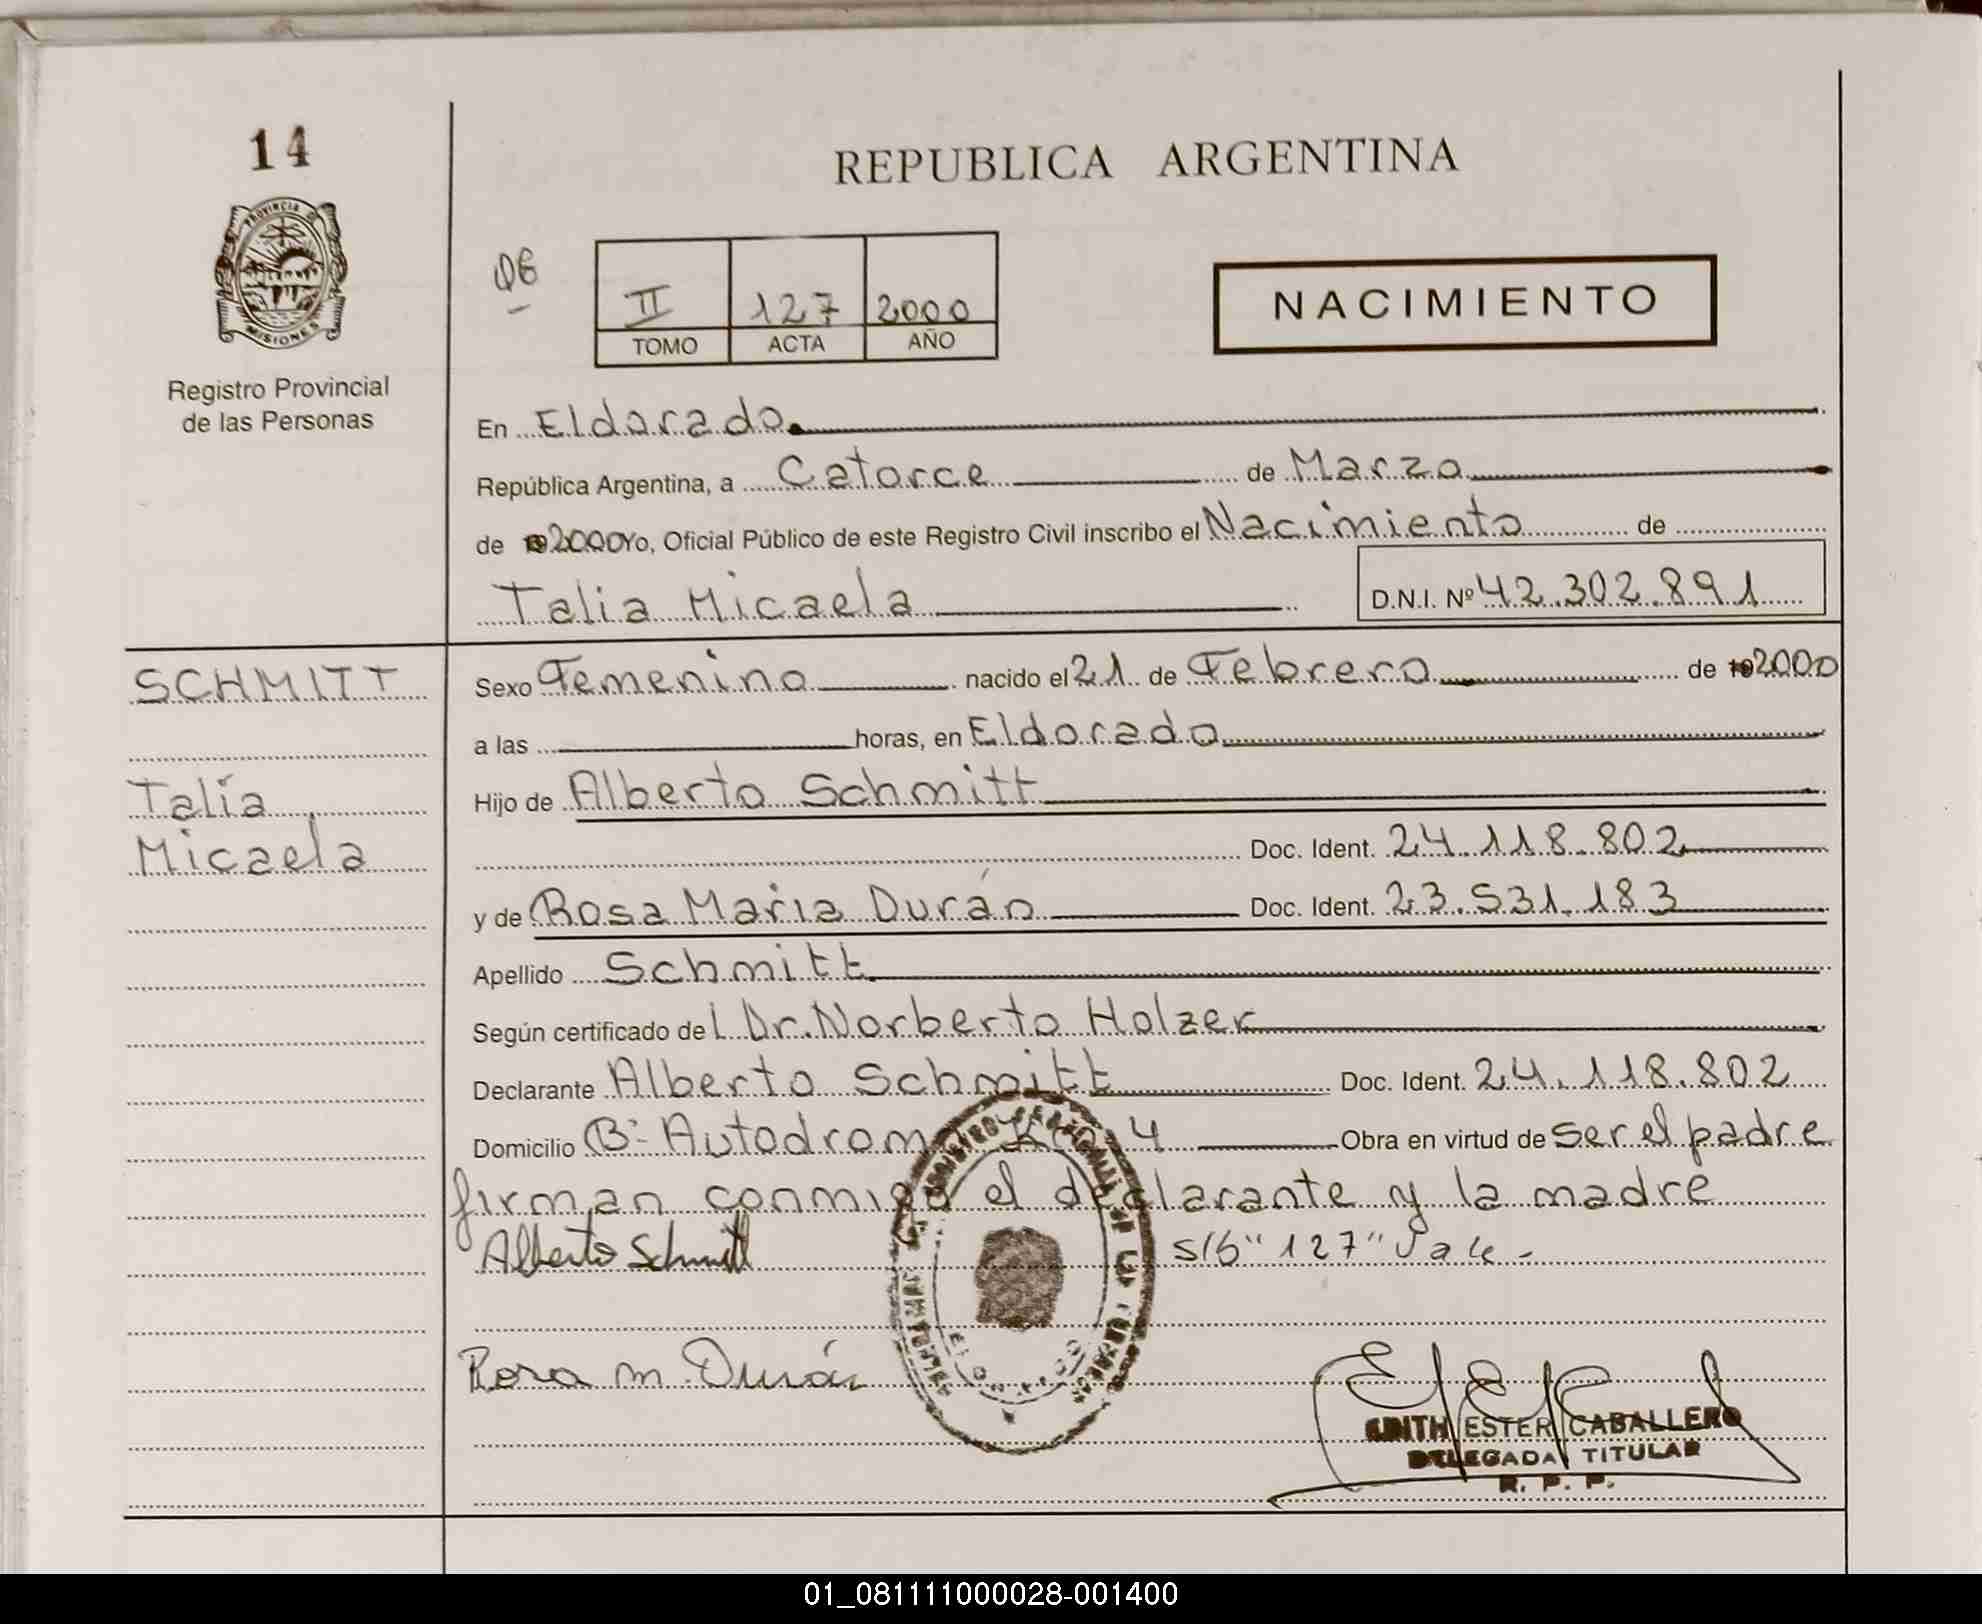 14
REPUBLICA ARGENTINA
PROVINCIA D
MISIONES
Registro Provincial
de las Personas
II 127 2000
TOMO ACTA AÑO
NACIMIENTO
En Eldorado
República Argentina, a Catorce de Marzo
de 2000 Yo, Oficial Público de este Registro Civil inscribo el Nacimiento de
Talia Micaela D.N.I. Nº 42.302.891
SCHMITT
Talía
Micaela
Sexo Femenino nacido el 21 de Febrero de 192000
a las horas, en Eldorado
Hijo de Alberto Schmitt
Doc. Ident. 24.118.802
y de Rosa Maria Durán Doc. Ident. 23.531.183
Apellido Schmitt
Según certificado del Dr. Norberto Holzer
Declarante Alberto Schmitt Doc. Ident. 24.118.802
Domicilio Bº Autodrom 4 Obra en virtud de ser el padre
firman conmigo el declarante y la madre
Alberto Schmitt s/b "127" Vale -
Rosa M. Durán
EDITH ESTER CABALLERO
DELEGADA TITULAR
R. P. P.
01_081111000028-001400